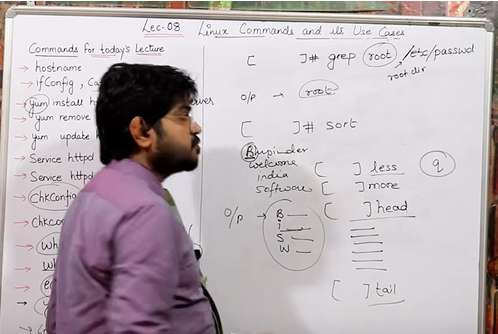 Lec-08 Linux Commands and its Use Cases
Commands for today's Lecture
→ hostname
→ ifConfig, Ca
→ yum install h server
→ yum remove
→ yum update h
→ Service httpd
→ Service httpd
→ ChkConfig
→ Chkco
→ wh
→ wh
[ ]# grep root /etc/passwd
root dir
o/p → root
[ ]# sort
Bhupinder
welcome
india
software
[ ] less
[ ] more
q
[ ] head
o/p → B
i
S
W
[ ] tail